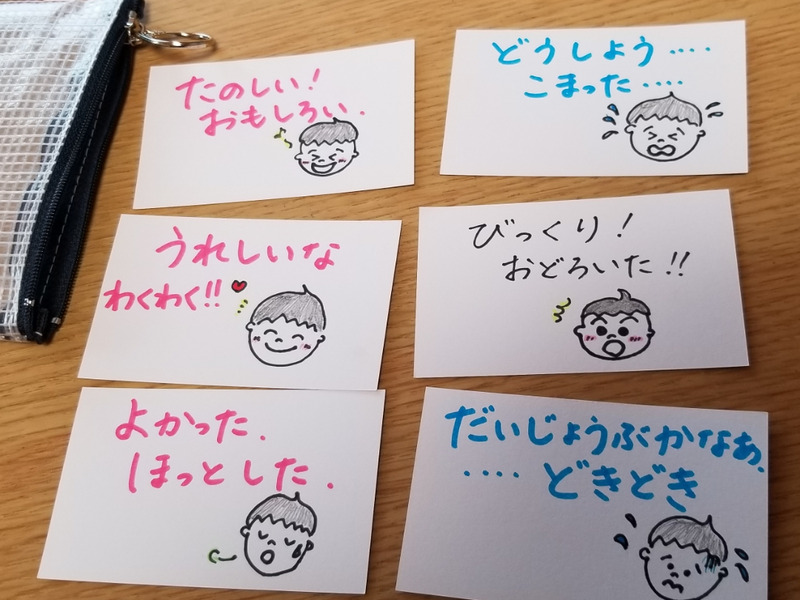 たのしい！
おもしろい.
どうしよう‥‥
こまった‥‥
うれしいな
わくわく!!
びっくり！
おどろいた!!
よかった.
ほっとした.
だいじょうぶかなぁ.
‥‥どきどき